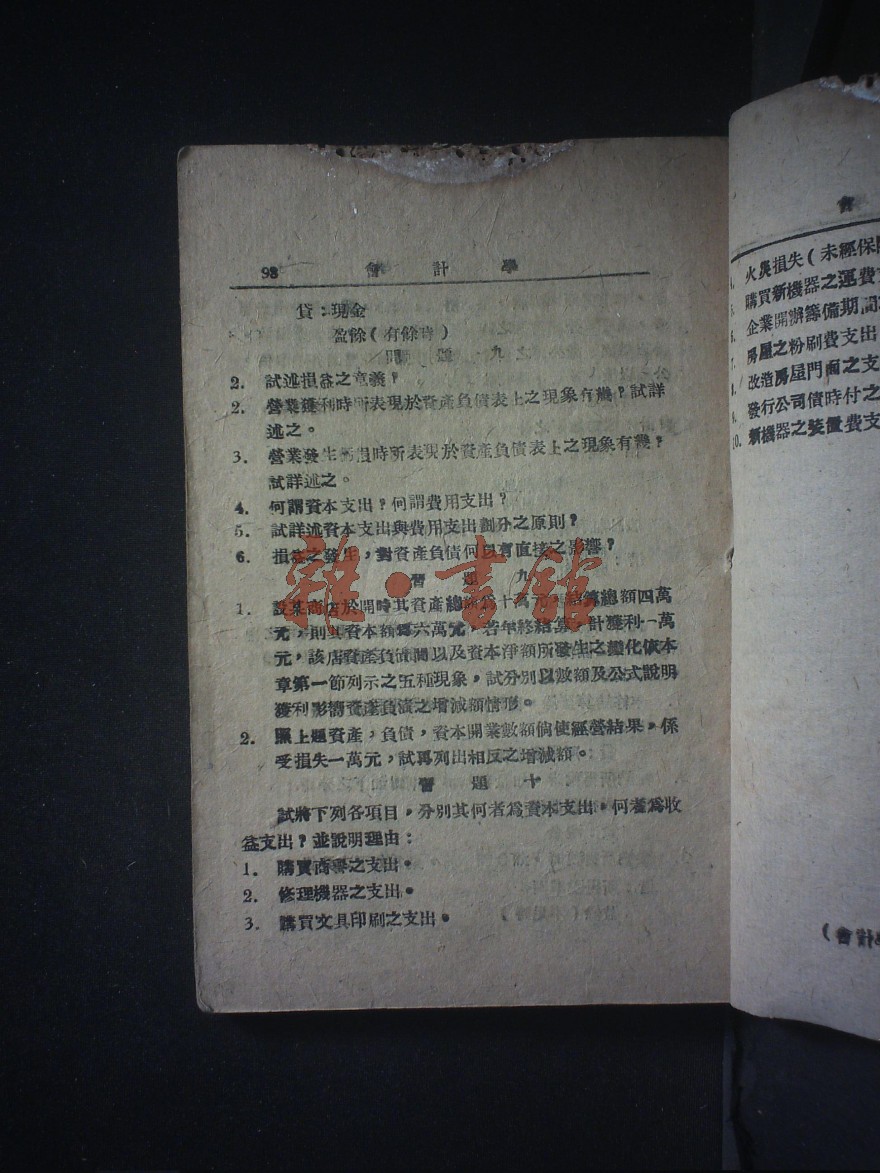 98
會計學
貸：現金
盈餘（有餘時）
問題九
2. 試述損益之意義？
2. 營業獲利時所表現於資產負債表上之現象有幾？試詳
述之。
3. 營業發生損時所表現於資產負債表上之現象有幾？
試詳述之。
4. 何謂資本支出？何謂費用支出？
5. 試詳述資本支出與費用支出劃分之原則？
6. 損益之發生，對資產負債何以有直接之影響？
習題九
1. 設某商店於開時其資產總額為十萬元，總額四萬
元，則其資本額為六萬元，若年終結算，計獲利一萬
元，該店資產負債間以及資本淨額所發生之變化依本
章第一節列示之五種現象，試分別以數額及公式說明
獲利影響資產負債之增減額情形。
2. 照上題資產，負債，資本開業數額倘使經營結果，係
受損失一萬元，試再列出相反之增減額。
習題十
試將下列各項目，分別其何者為資本支出，何者為收
益支出？並說明理由：
1. 購買商譽之支出。
2. 修理機器之支出。
3. 購買文具印刷之支出。
雜·書館
會
火災損失（未經保
購買新機器之運費
企業開辦籌備期間
6.
房屋之粉刷費支出
7.
改造房屋門面之支
8.
發行公司債時付之
9.
新機器之裝置費支
10.